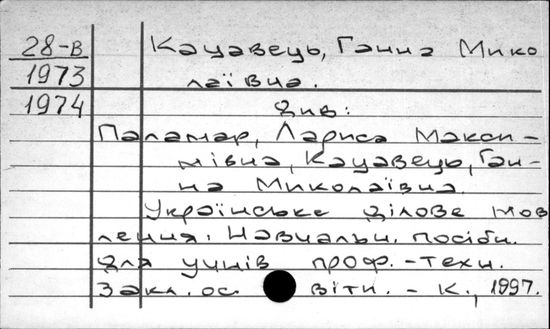 28-в Кацавець, Ганна Мико
1973 лаївна.
1974 див:
Паламар, Лариса Макси-
мівна, Кацавець, Ган-
на Миколаївна.
Українське ділове мов
лення. Навчальн. посібн.
для учнів проф.-техн.
Закл. ос віти. - К., 1997.